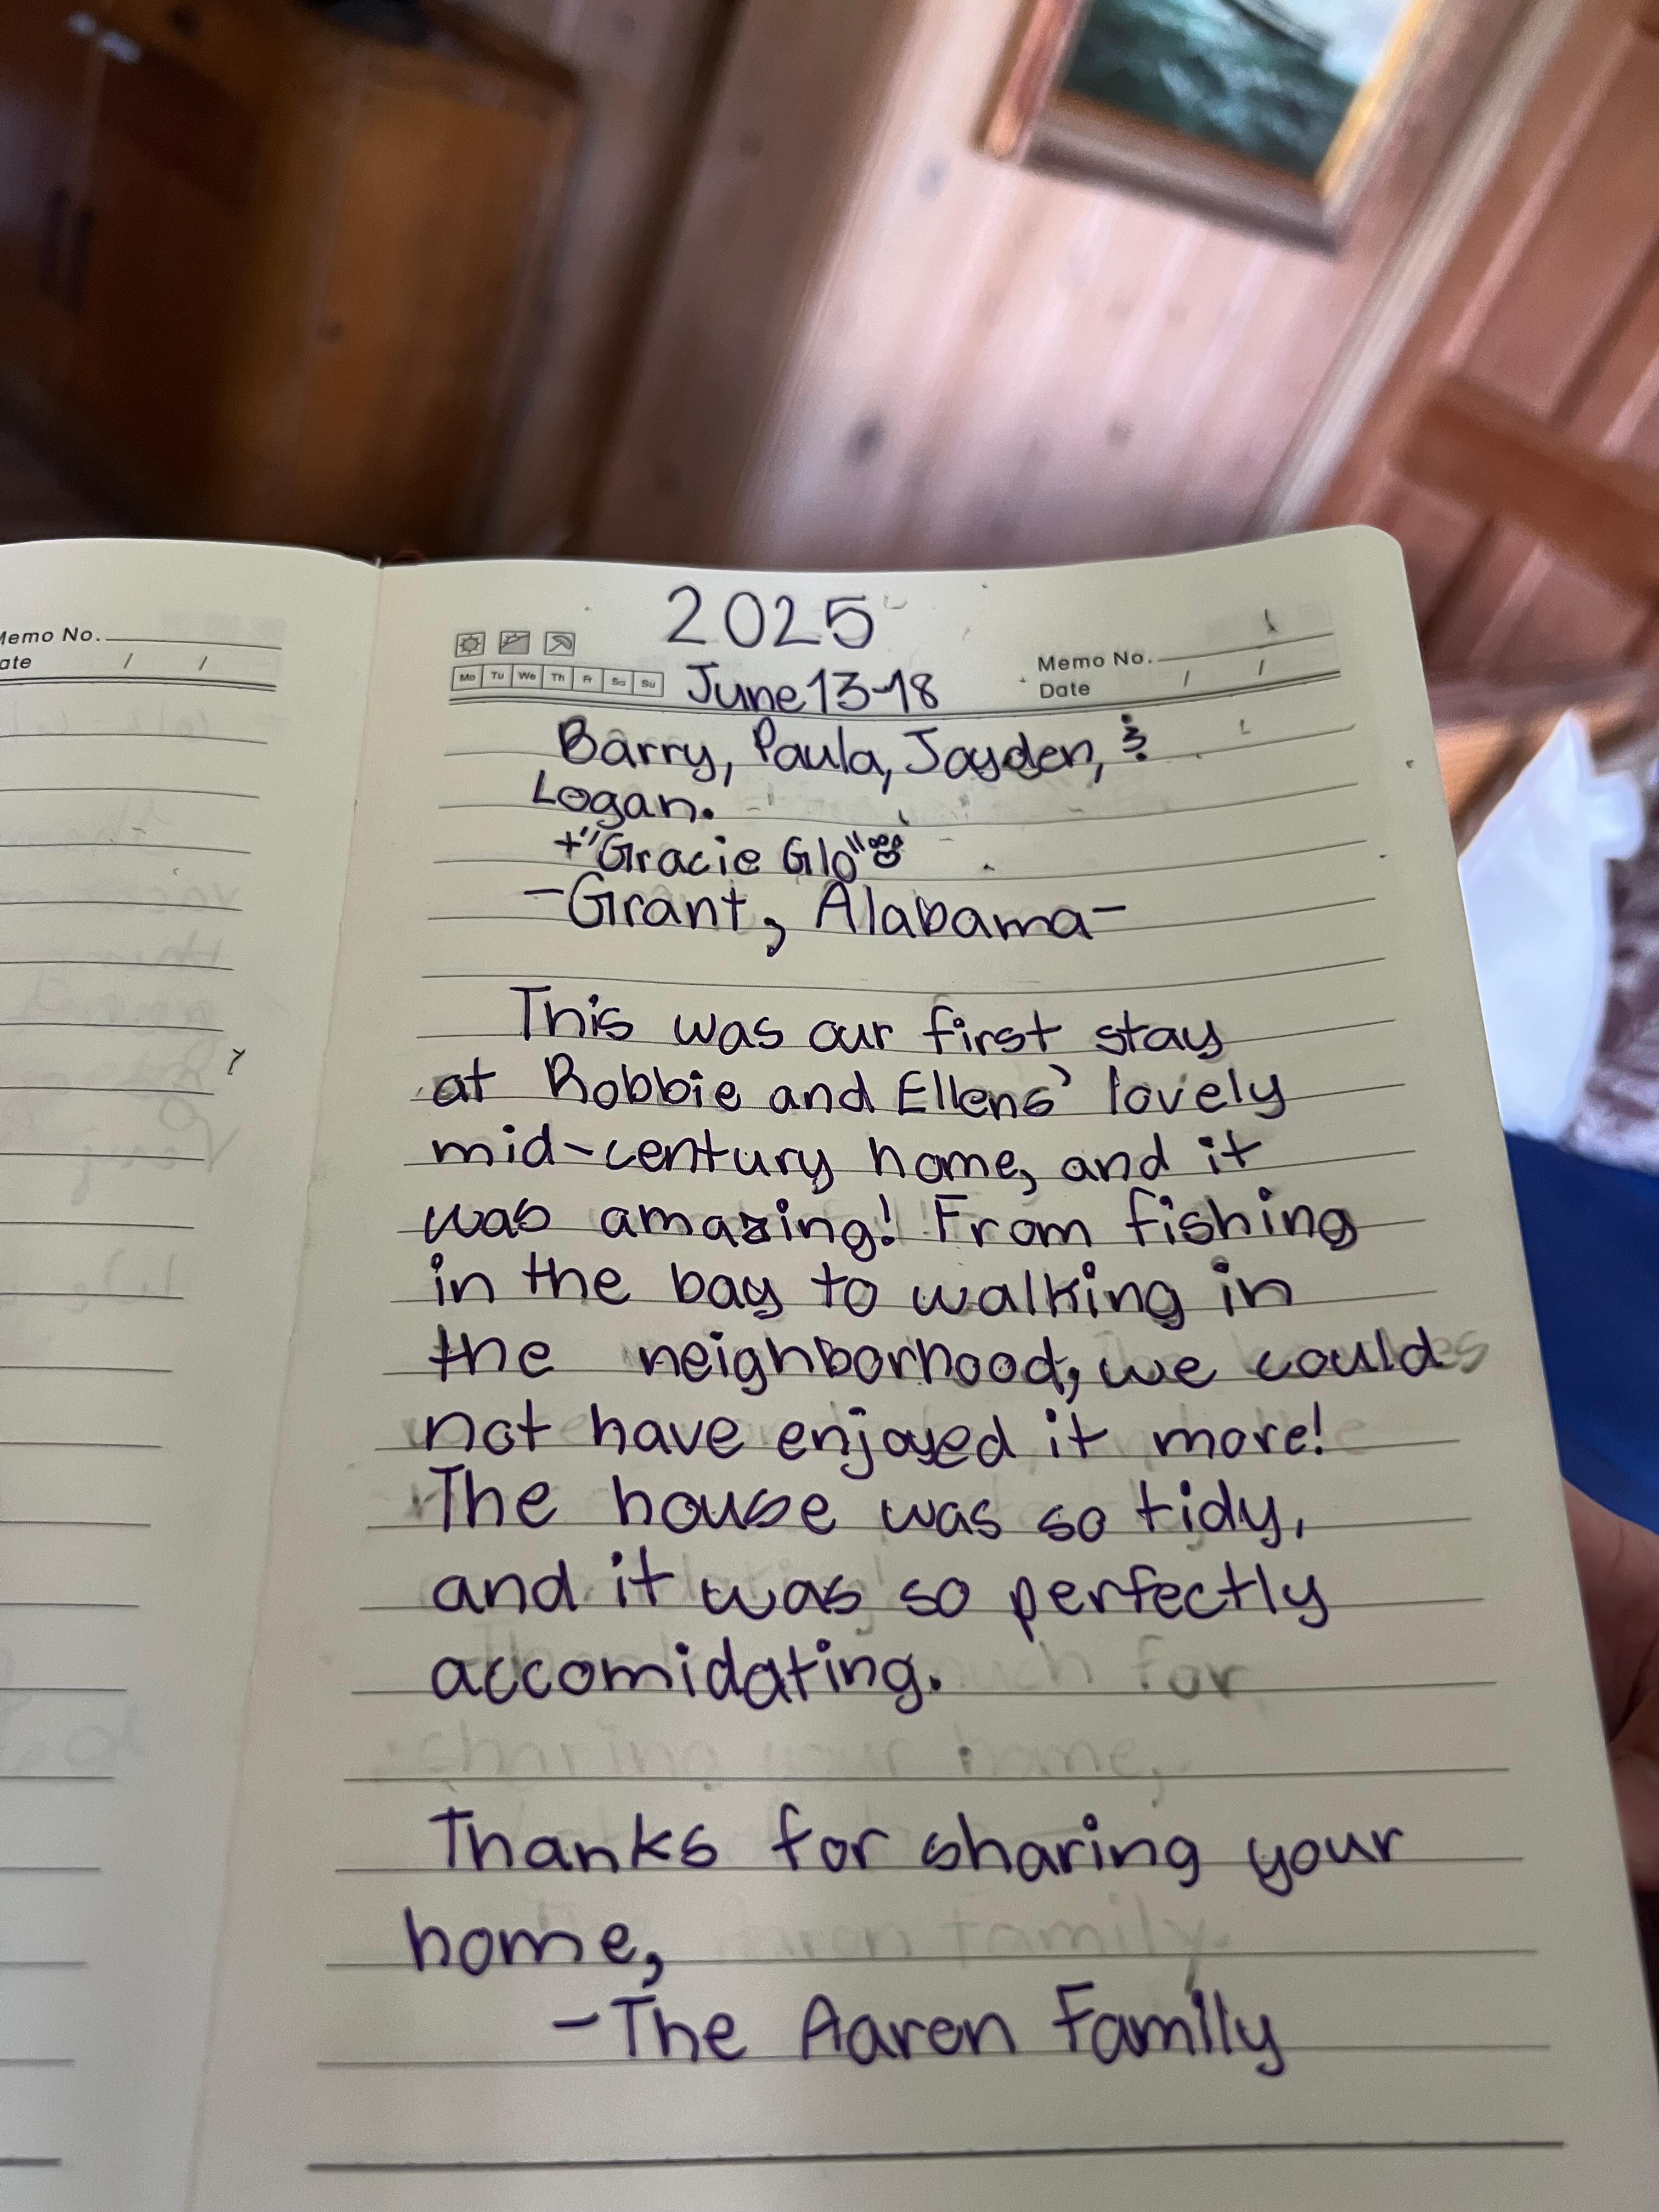 Memo No.
ate / /
2025
Memo No.
Mo Tu We Th Fr Sa Su
June 13-18
Date / /
Barry, Paula, Jayden, &
Logan.
+"Gracie Glo"
-Grant, Alabama-
This was our first stay
at Robbie and Ellens' lovely
mid-century home, and it
was amazing! From fishing
in the bay to walking in
the neighborhood, we could
not have enjoyed it more!
The house was so tidy,
and it was so perfectly
accomidating.
Thanks for sharing your
home,
-The Aaron Family